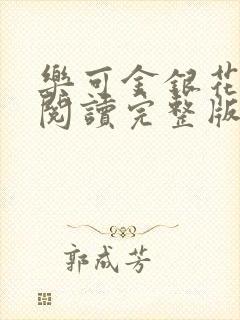 樂可金銀花
閱讀完整版
郭成芳